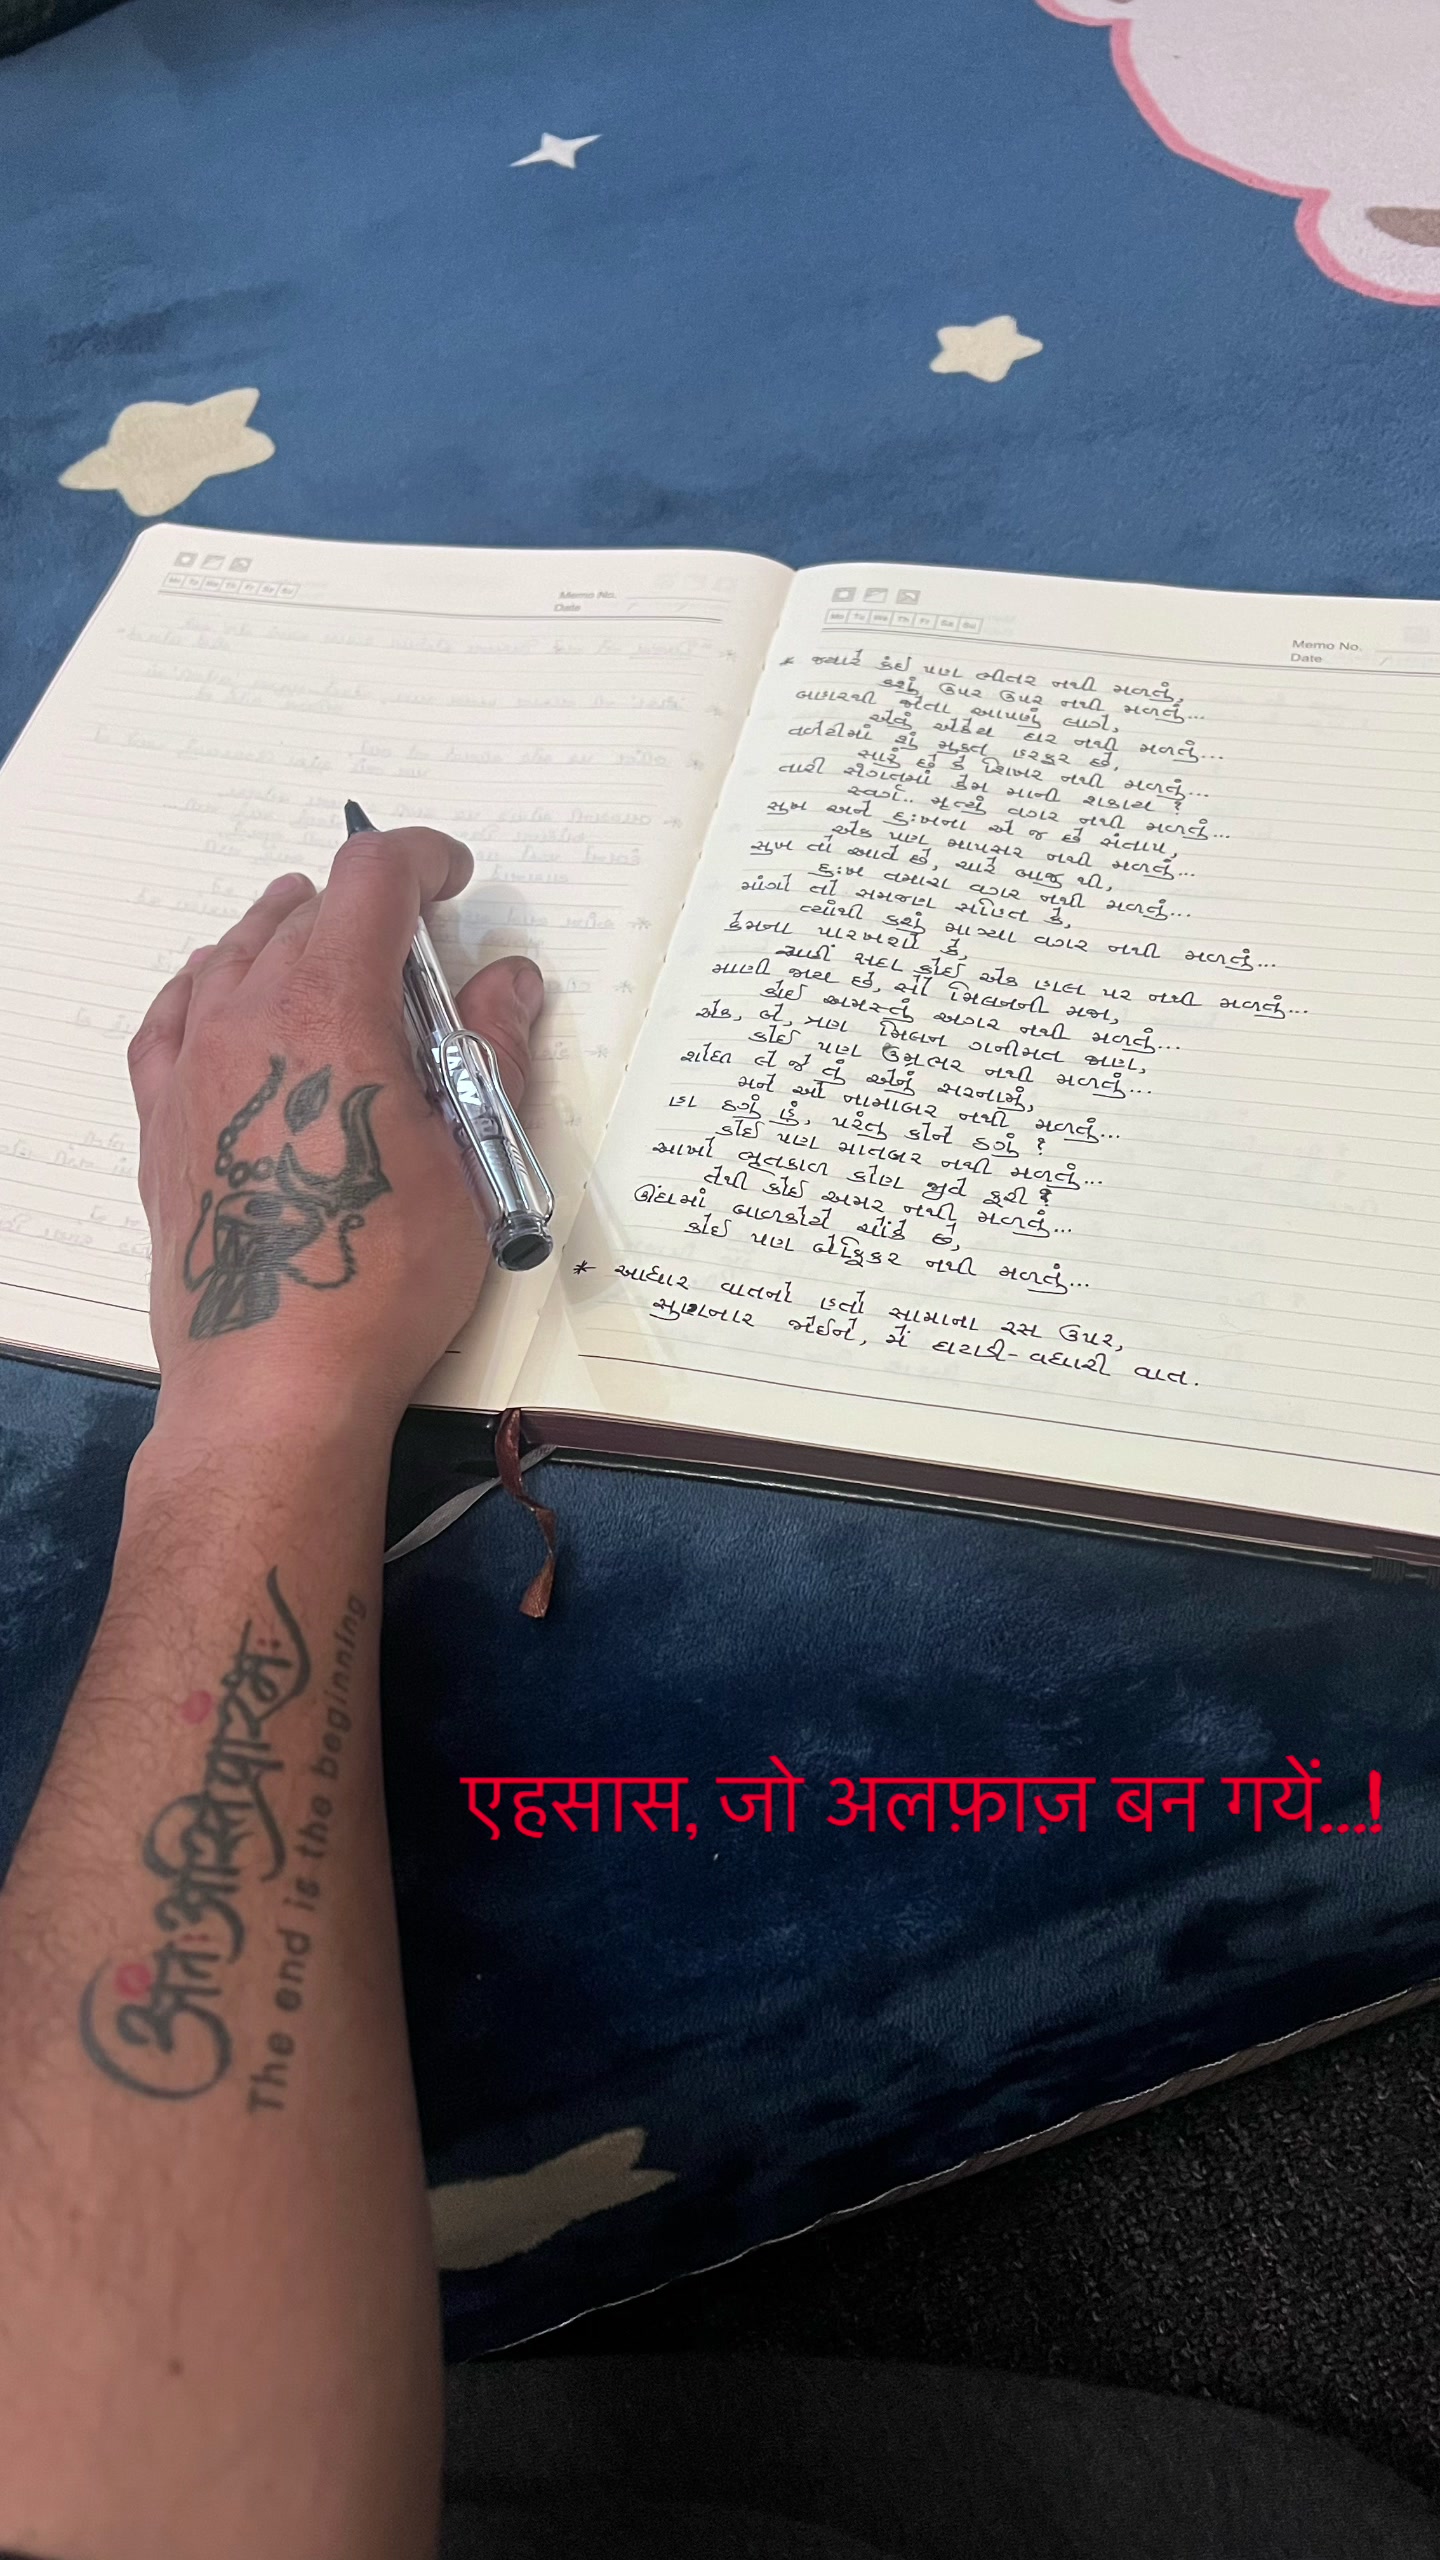 Mo Tu We Th Fr Sa Su
Memo No.
Date
Mo Tu We Th Fr Sa Su
Memo No.
Date
* જ્યારે કંઈ પણ ભીતર નથી મળતું,
કશું ઉપર ઉપર નથી મળતું...
બહારથી જોતા આપણું લાગે,
એવું એકેય ઘર નથી મળતું...
તળેટીમાં શું મુક્ત હરફર છે,
સારું છે કે શિખર નથી મળતું...
તારી સંગતમાં કેમ માની શકાય ?
સ્વર્ગ.. મૃત્યું વગર નથી મળતું...
સુખ અને દુઃખના એ જ છે સંતાપ,
એક પણ માપસર નથી મળતું...
સુખ તો આવે છે, ચારે બાજુ થી,
દુઃખ તમારા વગર નથી મળતું...
માંગો તો સમજણ સહિત કે,
ત્યાંથી કશું માગ્યા વગર નથી મળતું...
કેમના પારખશો કે,
અહીં સદા કોઈ એક હાલ પર નથી મળતું...
માણી જાય છે, સૌ મિલનની મજા,
કોઈ અમસ્તું અગર નથી મળતું...
એક, બે, ત્રણ મિલન ગનીમત જાણ,
કોઈ પણ ઉમ્રભર નથી મળતું...
શોધી લે જે તું એનું સરનામું,
મને ઓ નામાબર નથી મળતું...
હા ઠગું હું, પરંતુ કોને ઠગું ?
કોઈ પણ માતબર નથી મળતું...
આખો ભૂતકાળ કોણ જીવે ફરી ?
તેથી કોઈ અમર નથી મળતું...
ઊંઘમાં બાળકોયે ચોંકે છે,
કોઈ પણ બેફિકર નથી મળતું...
* આધાર વાતનો હતો સામાના રસ ઉપર,
સુણનાર જોઈને, મેં ઘટાડી-વધારી વાત.
अंतः अस्ति प्रारंभः
The end is the beginning
एहसास, जो अलफ़ाज़ बन गयें...!